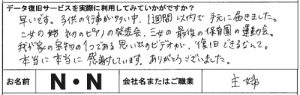 データ復旧サービスを実際に利用してみていかがですか?
早いです。子供の行事が多い中、1週間以内で手元に届きました。
二女の初のピアノの発表会、三女の最後の保育園の運動会、
我が家の宝物の1つである思い出のビデオが、復旧できるなんて。
本当に本当に感謝しています。ありがとうございました。
お名前 N・N 会社名またはご職業 主婦